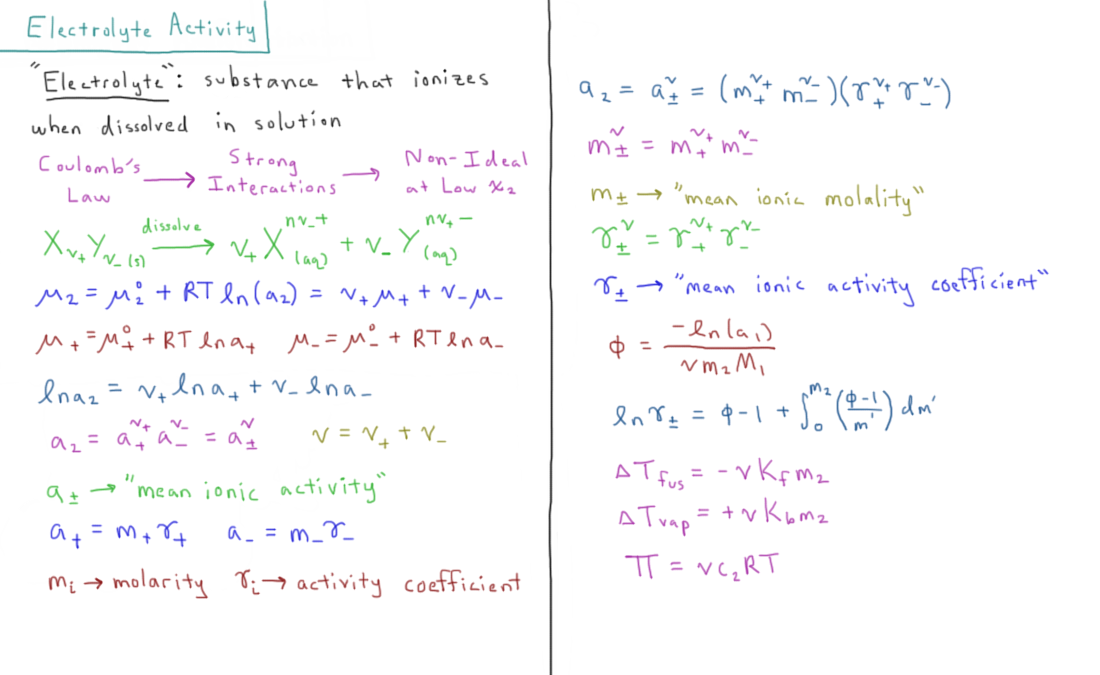 Electrolyte Activity
"Electrolyte": substance that ionizes
when dissolved in solution
Coulomb's Law → Strong Interactions → Non-Ideal at Low x₂
X_ν₊Y_ν₋(s) dissolve → ν₊X^(nν₋+)(aq) + ν₋Y^(nν₊−)(aq)
μ₂ = μ₂° + RT ln(a₂) = ν₊μ₊ + ν₋μ₋
μ₊ = μ₊° + RT ln a₊   μ₋ = μ₋° + RT ln a₋
ln a₂ = ν₊ ln a₊ + ν₋ ln a₋
a₂ = a₊^ν₊ a₋^ν₋ = a±^ν   ν = ν₊ + ν₋
a± → "mean ionic activity"
a₊ = m₊γ₊   a₋ = m₋γ₋
mᵢ → molarity   γᵢ → activity coefficient
a₂ = a±^ν = (m₊^ν₊ m₋^ν₋)(γ₊^ν₊ γ₋^ν₋)
m±^ν = m₊^ν₊ m₋^ν₋
m± → "mean ionic molality"
γ±^ν = γ₊^ν₊ γ₋^ν₋
γ± → "mean ionic activity coefficient"
ϕ = −ln(a₁) / νm₂M₁
ln γ± = ϕ−1 + ∫₀^m₂ (ϕ−1 / m′) dm′
ΔT_fus = −νK_f m₂
ΔT_vap = +νK_b m₂
Π = νc₂RT